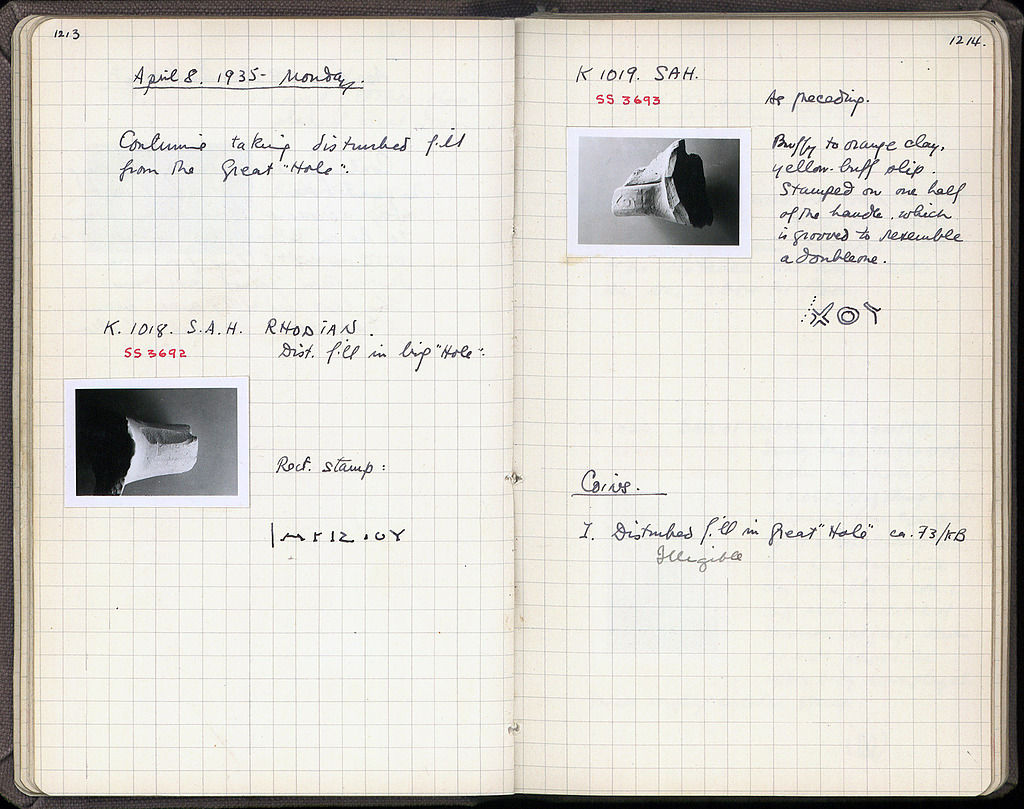 1213
April 8. 1935 - Monday.
Continuing taking disturbed fill
from the Great "Hole".
K. 1018. S.A.H. RHODIAN.
SS 3692
Dist. fill in big "Hole".
Rect. stamp:
1214.
K 1019. SAH.
SS 3693
As preceding.
Buffy to orange clay,
yellow-buff slip.
Stamped on one half
of the handle, which
is grooved to resemble
a double one.
Coins.
I. Disturbed fill in Great "Hole" ca. 73/KB
Illegible